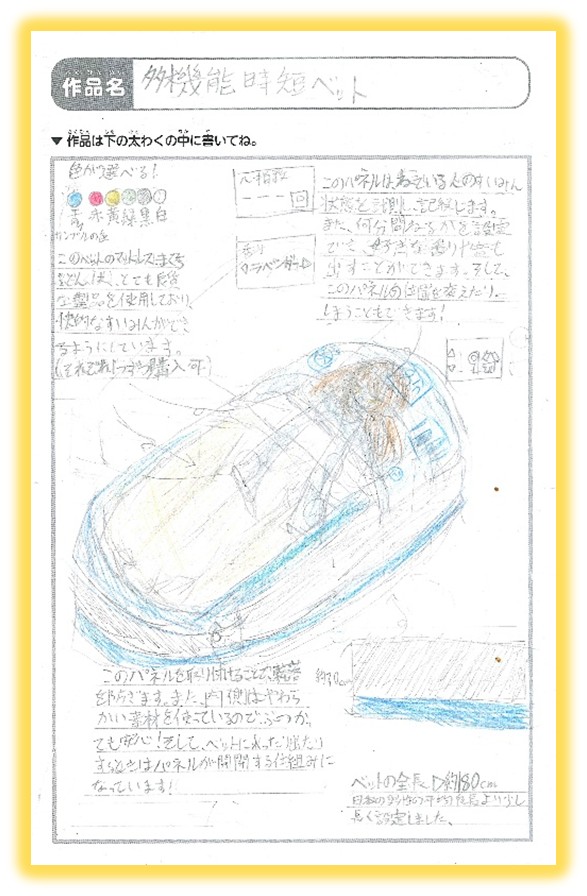 作品名 多機能時短ベット
▼作品は下の太わくの中に書いてね。
色が選べる!
青 赤 黄 緑 黒 白
サンプルの色
このベットのマットレス、まくら
ふとんは、とても良質
な製品を使用しており、
快的なすいみんができ
るようにしています。
(それぞれ1つずつ購入可)
回
香り
◁ラベンダー▷
このパネルはねている人のすいみん
状態を計測し、記録します。
また、何分間ねるかを設定
でき、好きな香りや音も
出すことができます。そして、
このパネルの位置を変えたり、
しまうこともできます!
このパネルを取り付けることで、騒音
を防ぎます。また、内側はやわら
かい素材を使っているので、ぶつかっ
ても安心!そして、ベットに入ったり出たり
するときはパネルが開閉する仕組みに
なっています!
ベットの全長▷約180cm
日本の男性の平均身長より少し
長く設定しました。